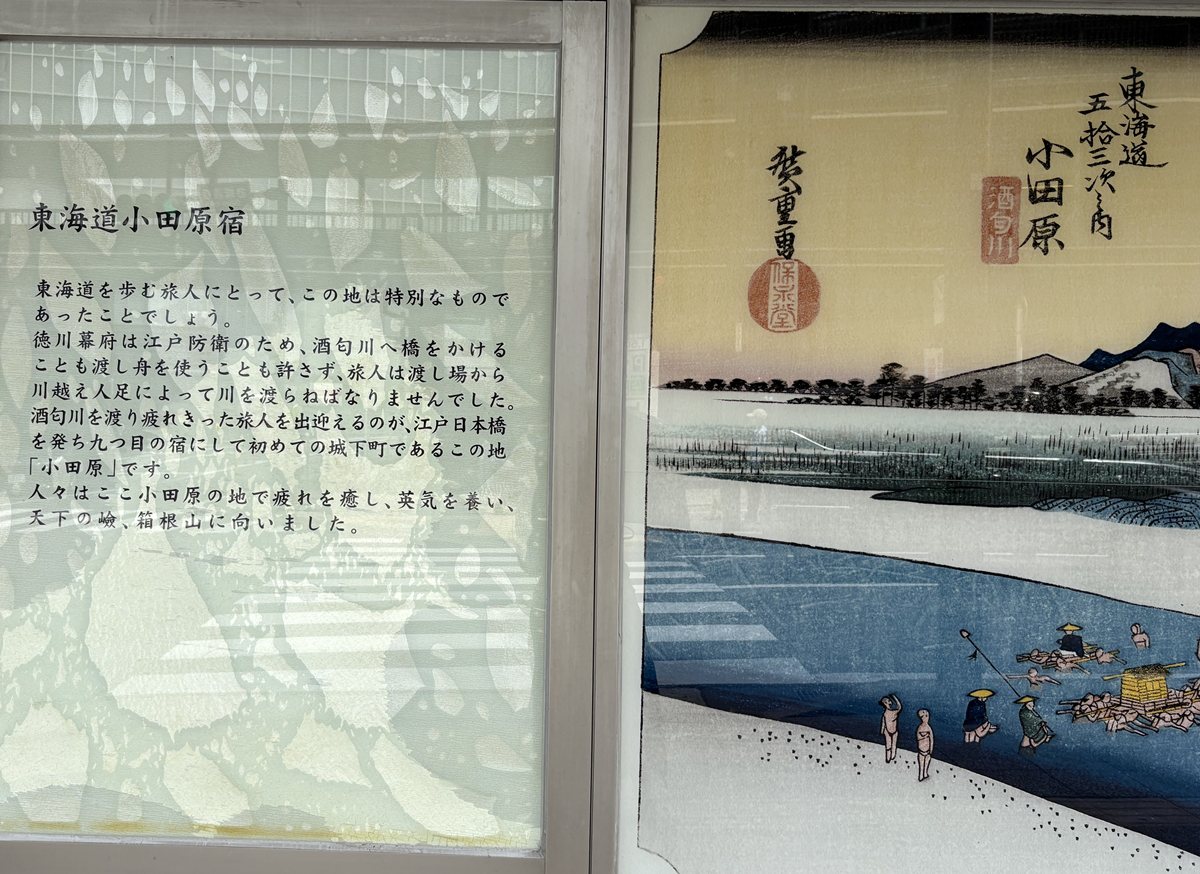 東海道小田原宿
東海道を歩む旅人にとって、この地は特別なもので
あったことでしょう。
徳川幕府は江戸防衛のため、酒匂川へ橋をかける
ことも渡し舟を使うことも許さず、旅人は渡し場から
川越え人足によって川を渡らねばなりませんでした。
酒匂川を渡り疲れきった旅人を出迎えるのが、江戸日本橋
を発ち九つ目の宿にして初めての城下町であるこの地
「小田原」です。
人々はここ小田原の地で疲れを癒し、英気を養い、
天下の嶮、箱根山に向いました。
東海道
五拾三次之内
小田原
酒匂川
廣重画
保永堂